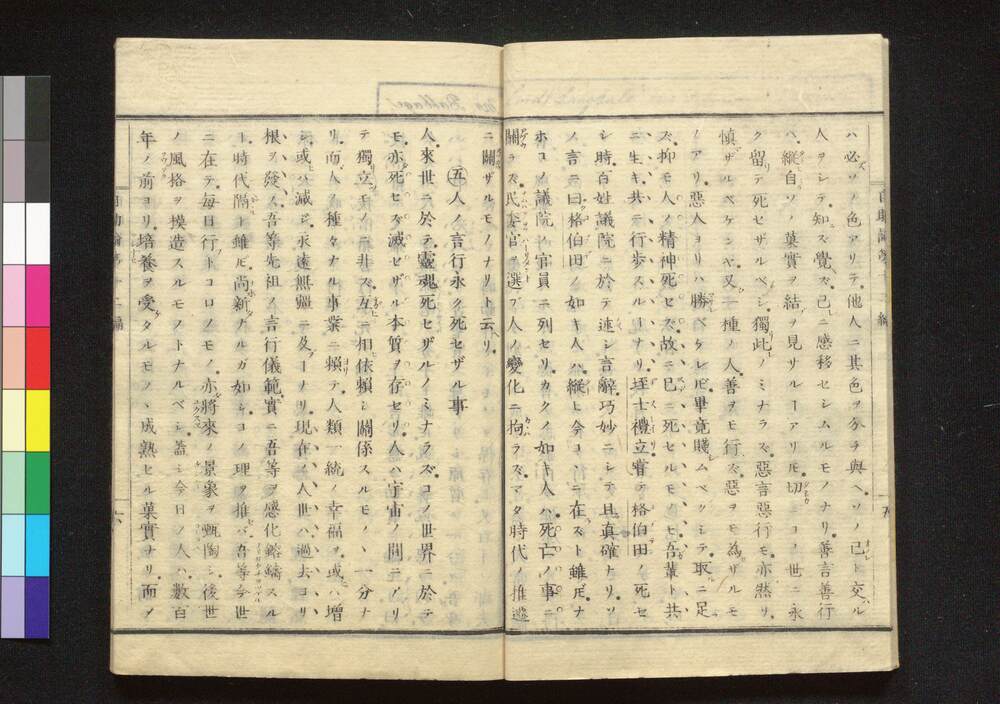 ハ必ソノ色アリテ他人ニ其色ヲ分チ與ヘソノ己ト交ル
人ヲシテ知ズ覺ズ己ニ感移セシムルモノナリ善言善行
ハ縱自ソノ菓實ヲ結ヲ見サルヿアリ𪜈切ニコノ世ニ永
ク留リテ死セザルベシ獨此ノミナラズ惡言惡行モ亦然リ
慎ザルベケンヤ又一種ノ人善ヲモ行ズ惡ヲモ為ザルモ
ノアリ惡人ヨリハ勝ベケレ𪜈畢竟賤ムベクシテ取ニ足
ズ抑モ人ノ精神死セズ故ニ已ニ死セルモノモ吾輩ト共
ニ生キ共ニ行歩スルヿナリ
格伯田ノ死セ
シ時百姓議院ニ於テ
言辭巧妙ニシテ且真確ナリソ
ノ言ニ曰格伯田ノ如キ人ハ縱ヒ今コノ行ニ在ズト雖𪜈ナ
ホコノ議院ノ官員ニ列セリカクノ如キ人ハ死亡ノ事ニ
關ラズ民委官ヲ選ブ人ノ變化ニ拘ラズマタ時代ノ推遷
ニ關ザルモノナリト云リ
㊄人ノ言行永ク死セザル事
人來世ニ於テ靈魂死セザルノミナラズコノ世界ニ於テ
モ亦死セズ滅ビザル本質ヲ存セリ人ハ宇宙ノ間ニアリ
テ獨立
ニ非ズ互ニ相依賴シ關係スルモノヽ一分ナ
リ而人種々ナル事業ニ賴テ人類一統ノ幸福ヲ或ハ增
シ或ハ減ジ永遠無疆ニ及ブヿノリ現在ノ人世ハ過去ヨリ
根ヲ發ス吾等先祖ノ言行儀範實ニ吾等ヲ感化鎔鑄スル
ヿ時代隔ト雖𪜈尚新ナルガ如シコノ理ヲ推バ吾等今世
ニ在テ毎日行フトコロノモノ亦將來ノ景象ヲ甄陶シ後世
ノ風格ヲ摸造スルモノトナルベシ蓋シ今日ノ人ハ數百
年ノ前ヨリ培養ヲ受タルモノヽ成熟セル菓實ナリ而ノ